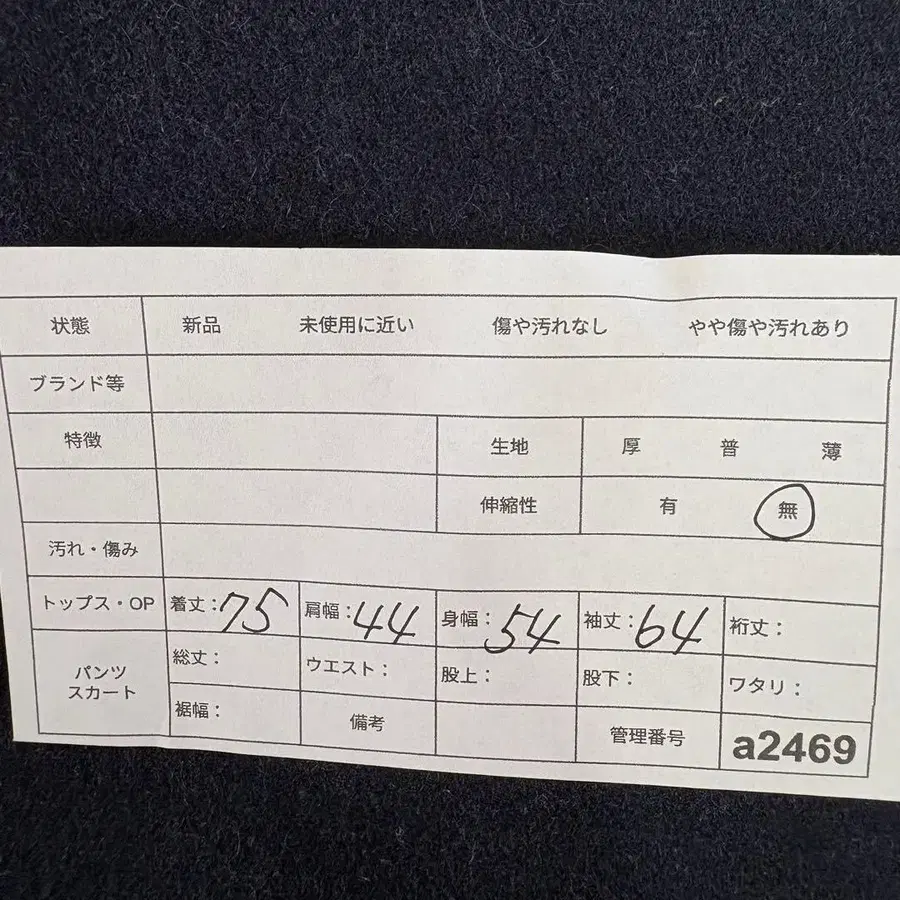 状態 新品 未使用に近い 傷や汚れなし やや傷や汚れあり
ブランド等
特徴 生地 厚 普 薄
伸縮性 有 無
汚れ・傷み
トップス・OP 着丈：75 肩幅：44 身幅：54 袖丈：64 裄丈：
パンツ
スカート
総丈： ウエスト： 股上： 股下： ワタリ：
裾幅： 備考 管理番号 a2469